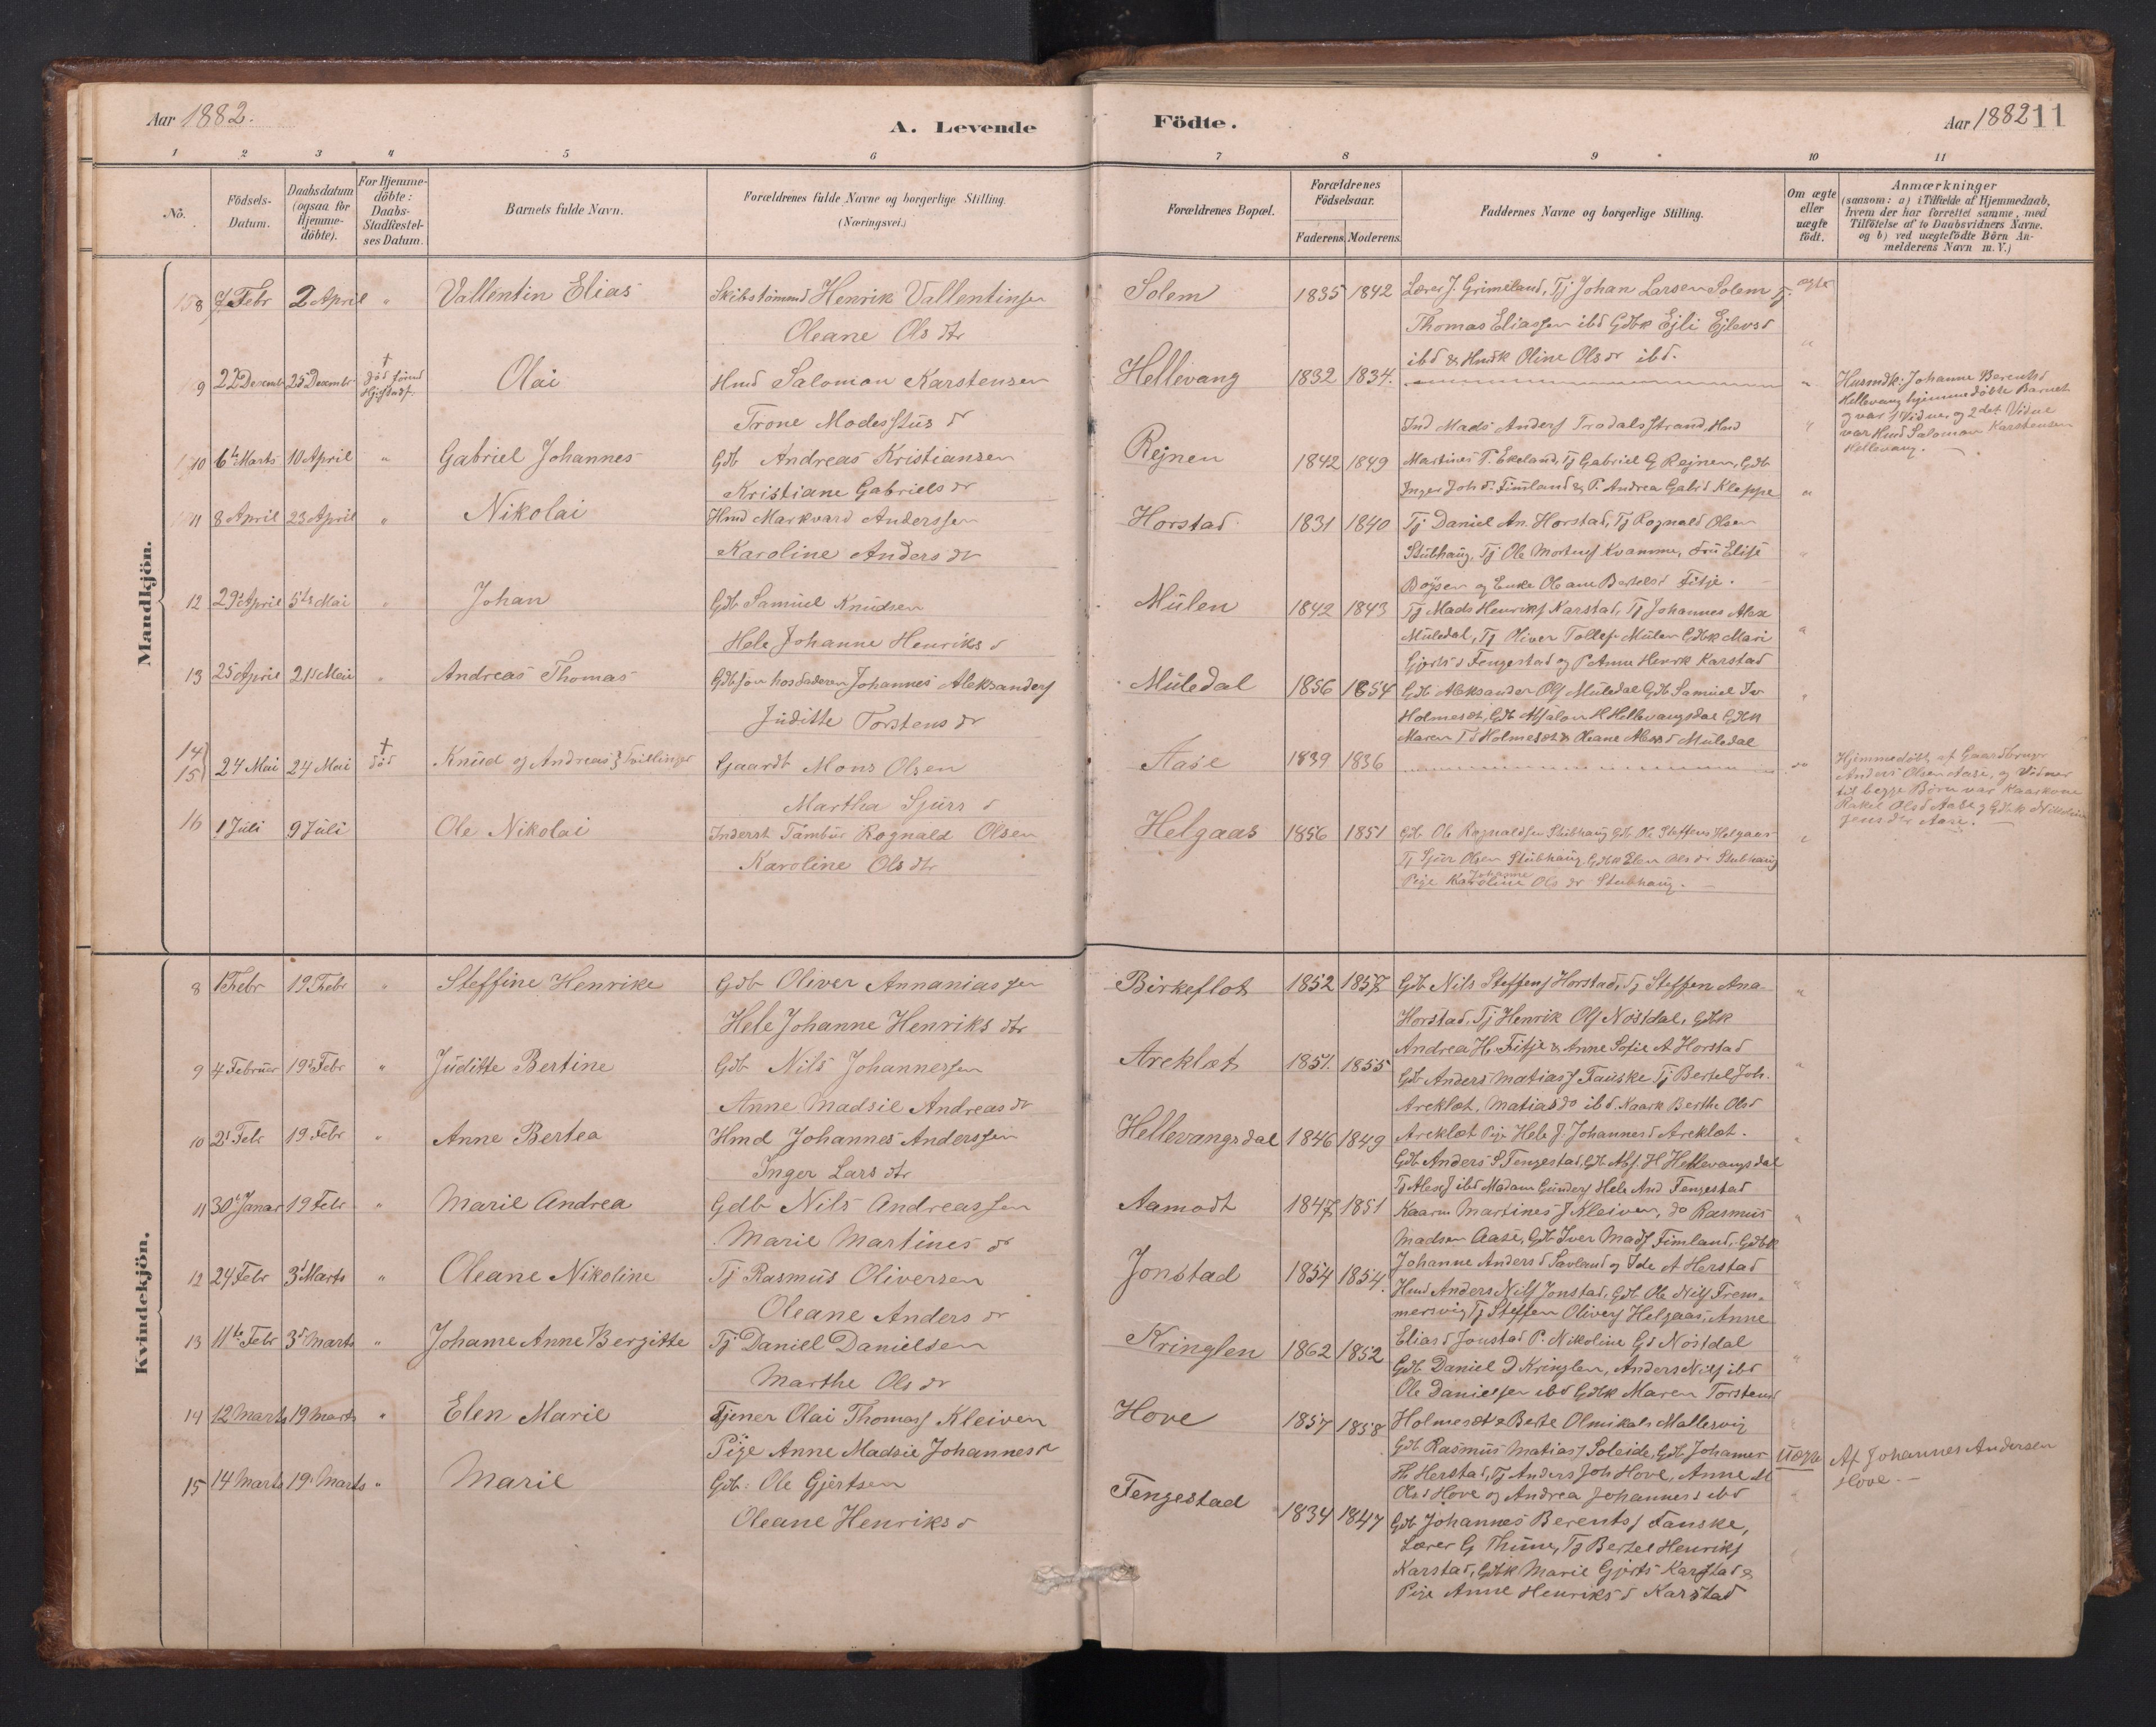 Aar 1882.
A. Levende
Födte.
Aar 1882 11
1 2 3 4 5 6 7 8 9 10 11
No.
Födsels-Datum.
Daabsdatum (ogsaa for Hjemme-döbte).
For Hjemme-döbte: Daabs-Stadfæstel-ses Datum.
Barnets fulde Navn.
Forældrenes fulde Navne og borgerlige Stilling.
(Næringsvei.)
Forældrenes Bopæl.
Forældrenes Födselsaar.
Faderens. Moderens.
Faddernes Navne og borgerlige Stilling.
Om ægte eller uægte födt.
Anmærkninger
(saasom: a) i Tilfælde af Hjemmedaab,
hvem der har forrettet samme, med
Tilföielse af to Daabsvidners Navne,
og b) ved uægtefödte Börn An-
melderens Navn m. V.)
Mandkjön.
8 Febr 2 April " Vallentin Elias Skibstømmd Henrik Vallentinsen Solem 1835 1842 Lærer J. Grimeland, Tj Johan Larsen Solem Tj. ægte
Oleane Ols dtr Thomas Eliassen ibd Gdbk Ejli Ejlevsd
ibd & Hmdk Oline Olsdr ibd.
9 22 Decembr 25 Decembr † død Olai Hmd Salomon Karstensen Hellevang 1832 1834. "
Trone Modesstus dr
Husmdk: Johanne Berentsd
Hellevang hjemmedøbte Barnet
og var 1 Vidne, og 2det Vidne
var Hmd Salomon Karstensen
Hellevang.
Ind Mads Anders Tradalsstrand, Hmd
10 6te Marts 10 April " Gabriel Johannes Gdb Andreas Kristiansen Rejnen 1842 1849 Martines P. Ekeland, Tj Gabriel G Rejnen, Gdb
Kristiane Gabriels dr Inger Joh d. Fimland & P. Andrea Gabrd Kleppe
11 8 April 23 April " Nikolai Hmd Markvard Anderssen Horstad 1831 1840 Tj Daniel An. Horstad, Tj Rognald Olsen
Karoline Anders dr Stubhaug, Tj Ole Mortens Kvamme, Fru Elise
Boysen og Enke Oleane Bertelsd Fitje.
12 29 April 5te Mai " Johan Gdb Samuel Knudsen Mulen 1842 1843 Tj Mads Henriks Karstad, Tj Johannes Alex
Hele Johanne Henriks d Muledal, Tj Oliver Tollefs Mulen Gdbk Mari
Gjerts d Fengestad og P Anne Henrk Karstad
13 25 April 21 Mai " Andreas Thomas Gdb søn hos Faderen Johannes Aleksanders Muledal 1856 1854 Gdb Aleksander Ols Muledal Gdb Samuel Iv
Juditte Torstens dr Holmesæt, Gdb Absalon H Hellevangsdal Gdbk
Maren T d Holmesæt & Oleane Alexd Muledal
14 15 24 Mai 24 Mai † død Knud og Andreas } Tvillinger Gaardb Mons Olsen Aase 1839 1836
Martha Sjurs d
Hjemmedøbt af Gaardbruger
Anders Olsen Aase, og Vidner
til begge Børn var Kaarkone
Rakel Olsd Aase og Gdbk Nikoline
Jensdtr Aase.
16 1 Juli 9 Juli Ole Nikolai Inderst Tambur Rognald Olsen Helgaas 1856 1851 Gdb Ole Rognaldsen Stubhaug Gdb Ole Steffens Helgaas
Karoline Ols dtr Tj Sjur Olsen Stubhaug, Gdbk Elen Ols dr Stubhaug
Pige Karoline Johanne Ols dr Stubhaug.
Kvindekjön.
8 1 Febr 19 Febr " Steffine Henrike Gdb Oliver Annaniassen Birkeflot 1852 1857 Gdb Nils Steffens Horstad, Tj Steffen Ana-
Hele Johanne Henriks dtr Horstad, Tj Henrik Ols Nøstdal, Gdbk
Andrea H. Fitje & Anne Sofie A Horstad
9 4 Februar 19 Febr " Juditte Bertine Gdb Nils Johannessen Areklet 1851. 1855 Gdb Anders Matias Fauske Tj Bertel Joh.
Anne Madsie Andreas dr Areklet, Matias do ibd. Kaark Berthe Olsd
Areklet Pige Hele J. Johannesd Areklet.
10 2 Febr 19 Febr " Anne Bertea Hmd Johannes Anderssen Hellevangsdal 1846 1849 Gdb Anders S Fengestad, Gdb Abs. H Hellevangsdal
Inger Lars dtr Tj Alexs ibd Madam Gunders Hele And Fengestad
11 30 Januar 19 Febr " Marie Andrea Gdb Nils Andreassen Aamodt 1847 1851 Kaarm Martines J Kleiven, do Rasmus
Marie Martines dr Madsen Aase, Gdb Iver Mads Fimland, Gdbk
Johanne Anders d Savland og Ide A Herstad
12 24 Febr 3 Marts " Oleane Nikoline Tj Rasmus Oliversen Jonstad 1854 1854. Hmd Anders Nils Jonstad, Gdb Ole Nils Frem-
Oleane Anders dr mersvig Tj Steffen Olivers Helgaas, Anne
Elias d Jonstad P. Nikoline G d Nøstdal
13 11te Febr 3 Marts " Johanne Anne Bergitte Tj Daniel Danielsen Kringlen 1862 1852 Gdb Daniel D Kringlen, Anders Nils ibd
Marthe Ols dr Ole Danielsen ibd Gdbk Maren Torstensd
14 12 Marts 19 Marts " Elen Marie Tjener Olai Thomass Kleiven Hove 1857 1858 Holmesæt & Berte Olmikals Mallesvig
Pige Anne Madsie Johannes dr Gdb Rasmus Matias Soleide, Gdb Johannes Uægte
Af Johannes Andersen
Hove.
Th Herstad, Tj Anders Joh Hove, Anne M
Olsd Hove og Andrea Johannesd ibd
15 14 Marts 19 Marts " Marie Gdb: Ole Gjertsen Fengestad 1834 1847 Gdb Johannes Berents Fauske,
Oleane Henriks d Lærer G Thune, Tj Bertel Henriks
Karstad, Gdbk Marie Gjerts Karstad &
Pige Anne Henriks d Karstad